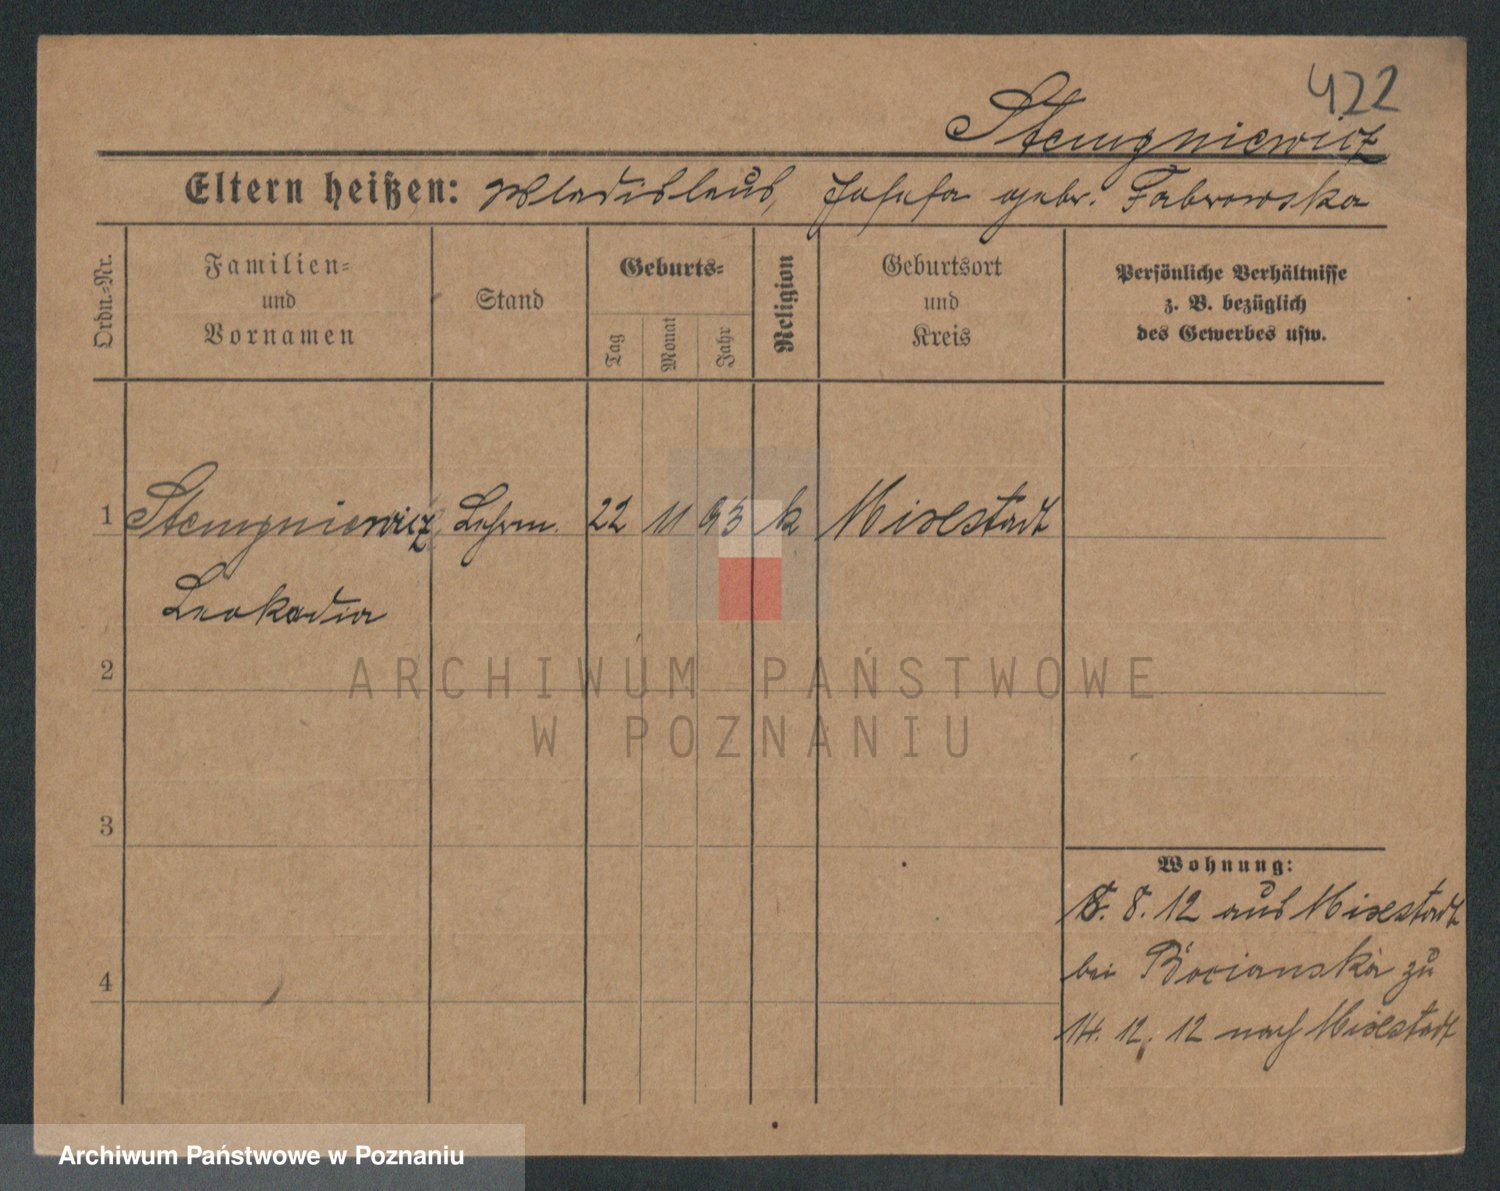 422
Stemgniewicz
Eltern heißen: Wladislaus, Josefa gebr. Fabrowska
Ordn.-Nr.
Familien-
und
Vornamen
Stand
Geburts-
Tag
Monat
Jahr
Religion
Geburtsort
und
Kreis
Persönliche Verhältnisse
z. B. bezüglich
des Gewerbes usw.
1 Stemgniewicz Lehrm. 22 11 93 k Mixstadt
Leokadia
2
3
4
Wohnung:
8. 12 aus Mixstadt
bei Bocianska zu
14. 12. 12 nach Mixstadt
ARCHIWUM PAŃSTWOWE
W POZNANIU
Archiwum Państwowe w Poznaniu